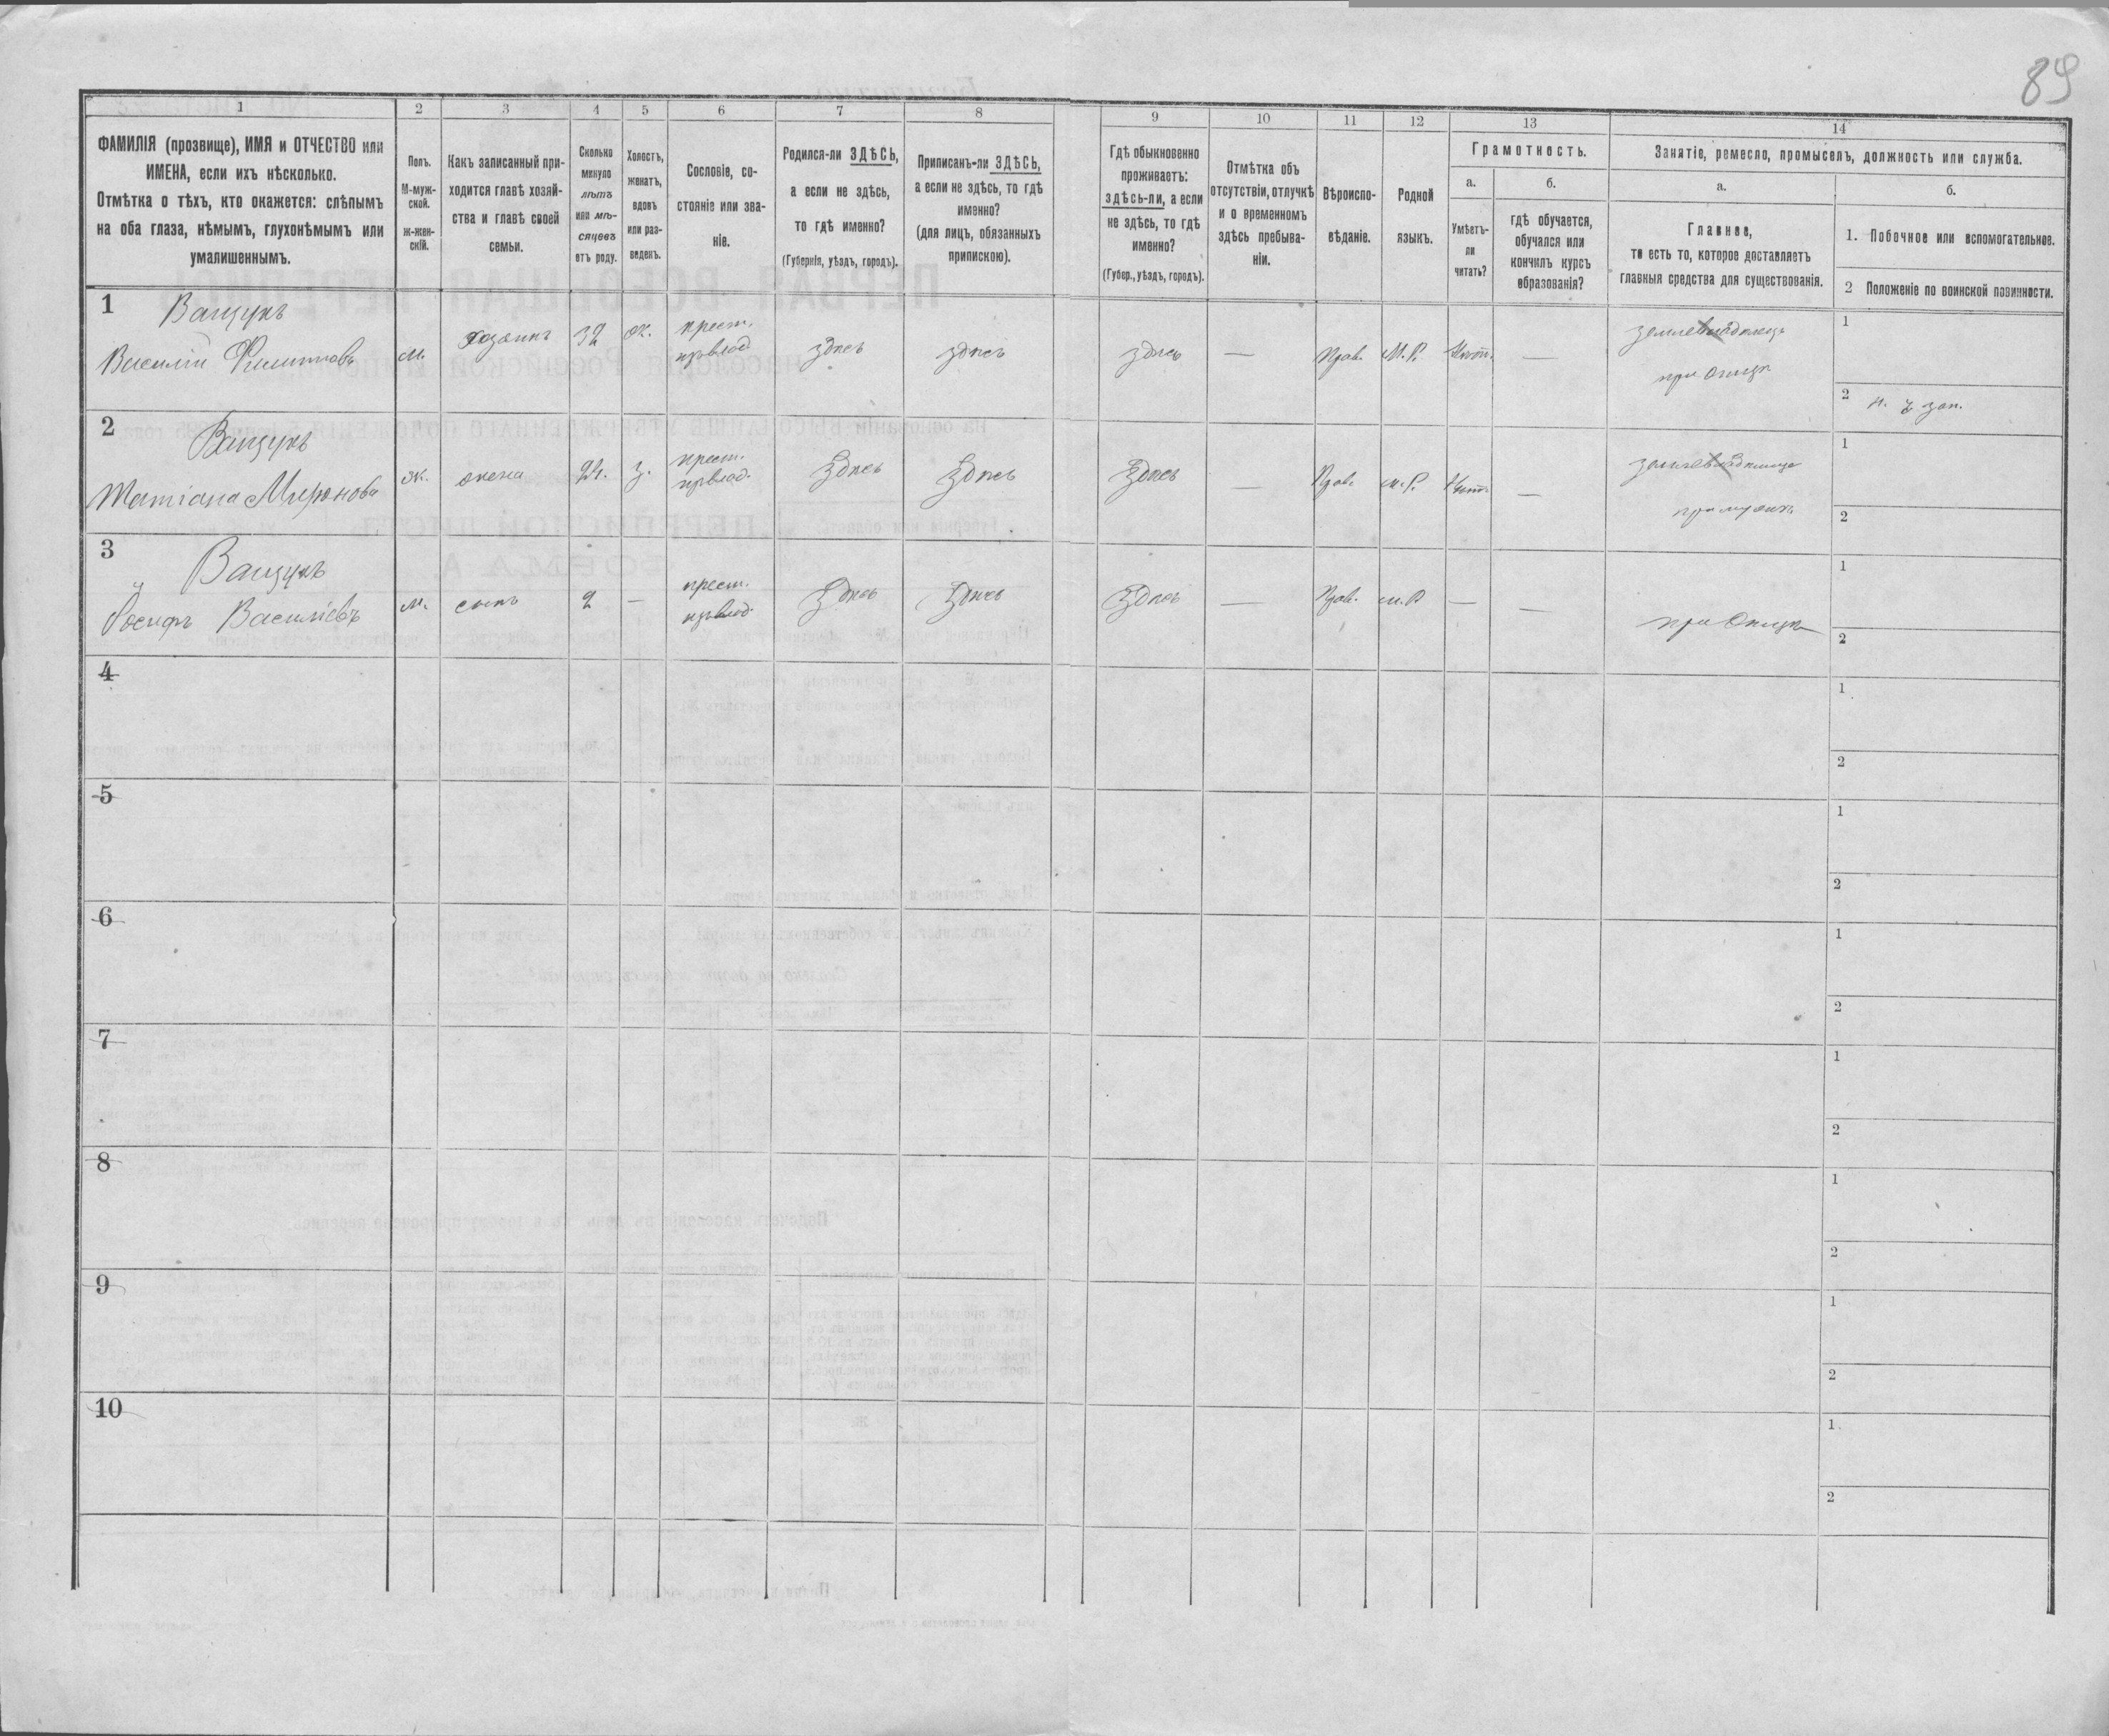 89
1 2 3 4 5 6 7 8 9 10 11 12 13 14
ФАМИЛІЯ (прозвище), ИМЯ и ОТЧЕСТВО или
ИМЕНА, если ихъ нѣсколько.
Отмѣтка о тѣхъ, кто окажется: слѣпымъ
на оба глаза, нѣмымъ, глухонѣмымъ или
умалишеннымъ.
Полъ.
М-муж-
ской.
ж-жен-
скій.
Какъ записанный при-
ходится главѣ хозяй-
ства и главѣ своей
семьи.
Сколько
минуло
лѣтъ
или мѣ-
сяцевъ
отъ роду.
Холостъ,
женатъ,
вдовъ
или раз-
веденъ.
Сословіе, со-
стояніе или зва-
ніе.
Родился-ли ЗДѢСЬ,
а если не здѣсь,
то гдѣ именно?
(Губернія, уѣздъ, городъ).
Приписанъ-ли ЗДѢСЬ,
а если не здѣсь, то гдѣ
именно?
(для лицъ, обязанныхъ
припискою).
Гдѣ обыкновенно
проживаетъ:
здѣсь-ли, а если
не здѣсь, то гдѣ
именно?
(Губер., уѣздъ, городъ).
Отмѣтка объ
отсутствіи, отлучкѣ
и о временномъ
здѣсь пребыва-
ніи.
Вѣроиспо-
вѣданіе.
Родной
языкъ.
Грамотность.
а.
Умѣетъ-
ли
читать?
б.
гдѣ обучается,
обучался или
кончилъ курсъ
образованія?
Занятіе, ремесло, промыселъ, должность или служба.
а.
Главное,
то есть то, которое доставляетъ
главныя средства для существованія.
б.
1. Побочное или вспомогательное.
2 Положеніе по воинской повинности.
1 Ващукъ
Василій м. хозяинъ 32 ж. крест. здѣсь здѣсь здѣсь — Прав. М.Р. — землевладѣлецъ
при отцѣ
1
2
2 Ващукъ
Татіана Миронова ж. жена 24. з. крест. здѣсь здѣсь здѣсь — Прав. м.Р. —
при мужѣ
1
2
3 Ващукъ
Іосифъ Василіевъ м. сынъ 2 — крест. здѣсь здѣсь здѣсь — Прав. м.Р. — —
при отцѣ
1
2
4
1
2
5
1
2
6
1
2
7
1
2
8
1
2
9
1
2
10
1
2